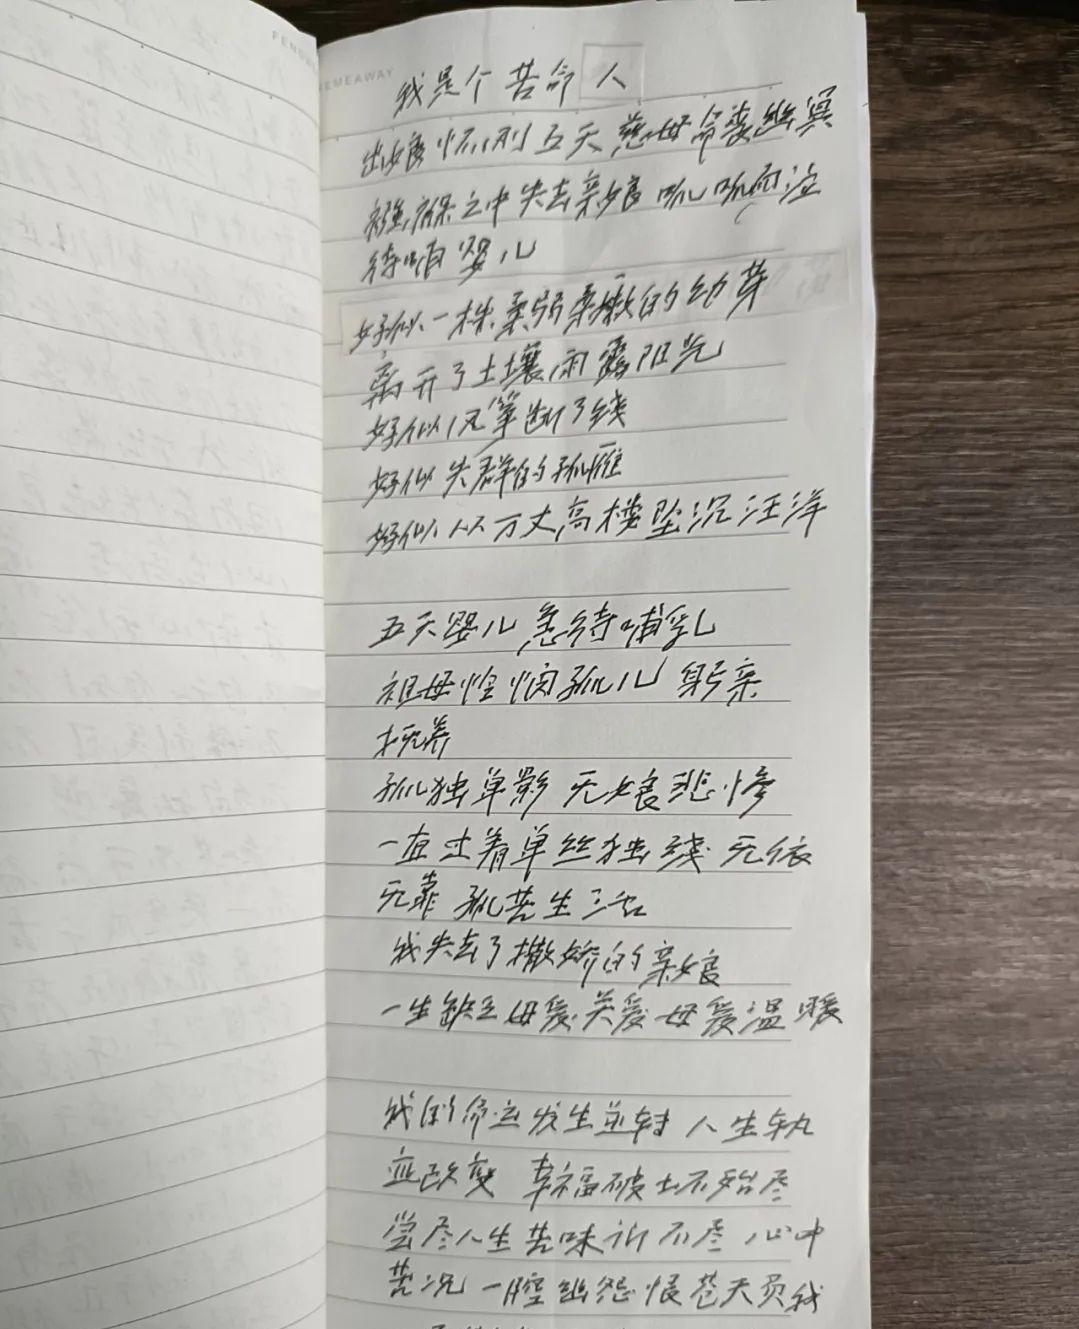 FEMEAWAY
我是个苦命人
出娘怀刚五天 慈母命丧幽冥
襁褓之中失去亲娘 呱呱而泣
待哺婴儿
好似一株柔弱柔嫩的幼芽
离开了土壤雨露阳光
好似风筝断了线
好似失群的孤雁
好似从万丈高楼坠沉汪洋
五天婴儿急待哺乳
祖母怜悯孤儿 躬亲
抚养
孤独单影 无娘悲惨
一直过着单丝独线 无依
无靠 孤苦生活
我失去了撒娇的亲娘
一生缺乏母爱关爱 母爱温暖
我的命运发生逆转 人生轨
迹改变 幸福破土不殆尽
尝尽人生苦味诉不尽 心中
苦况 一腔幽怨恨苍天负我